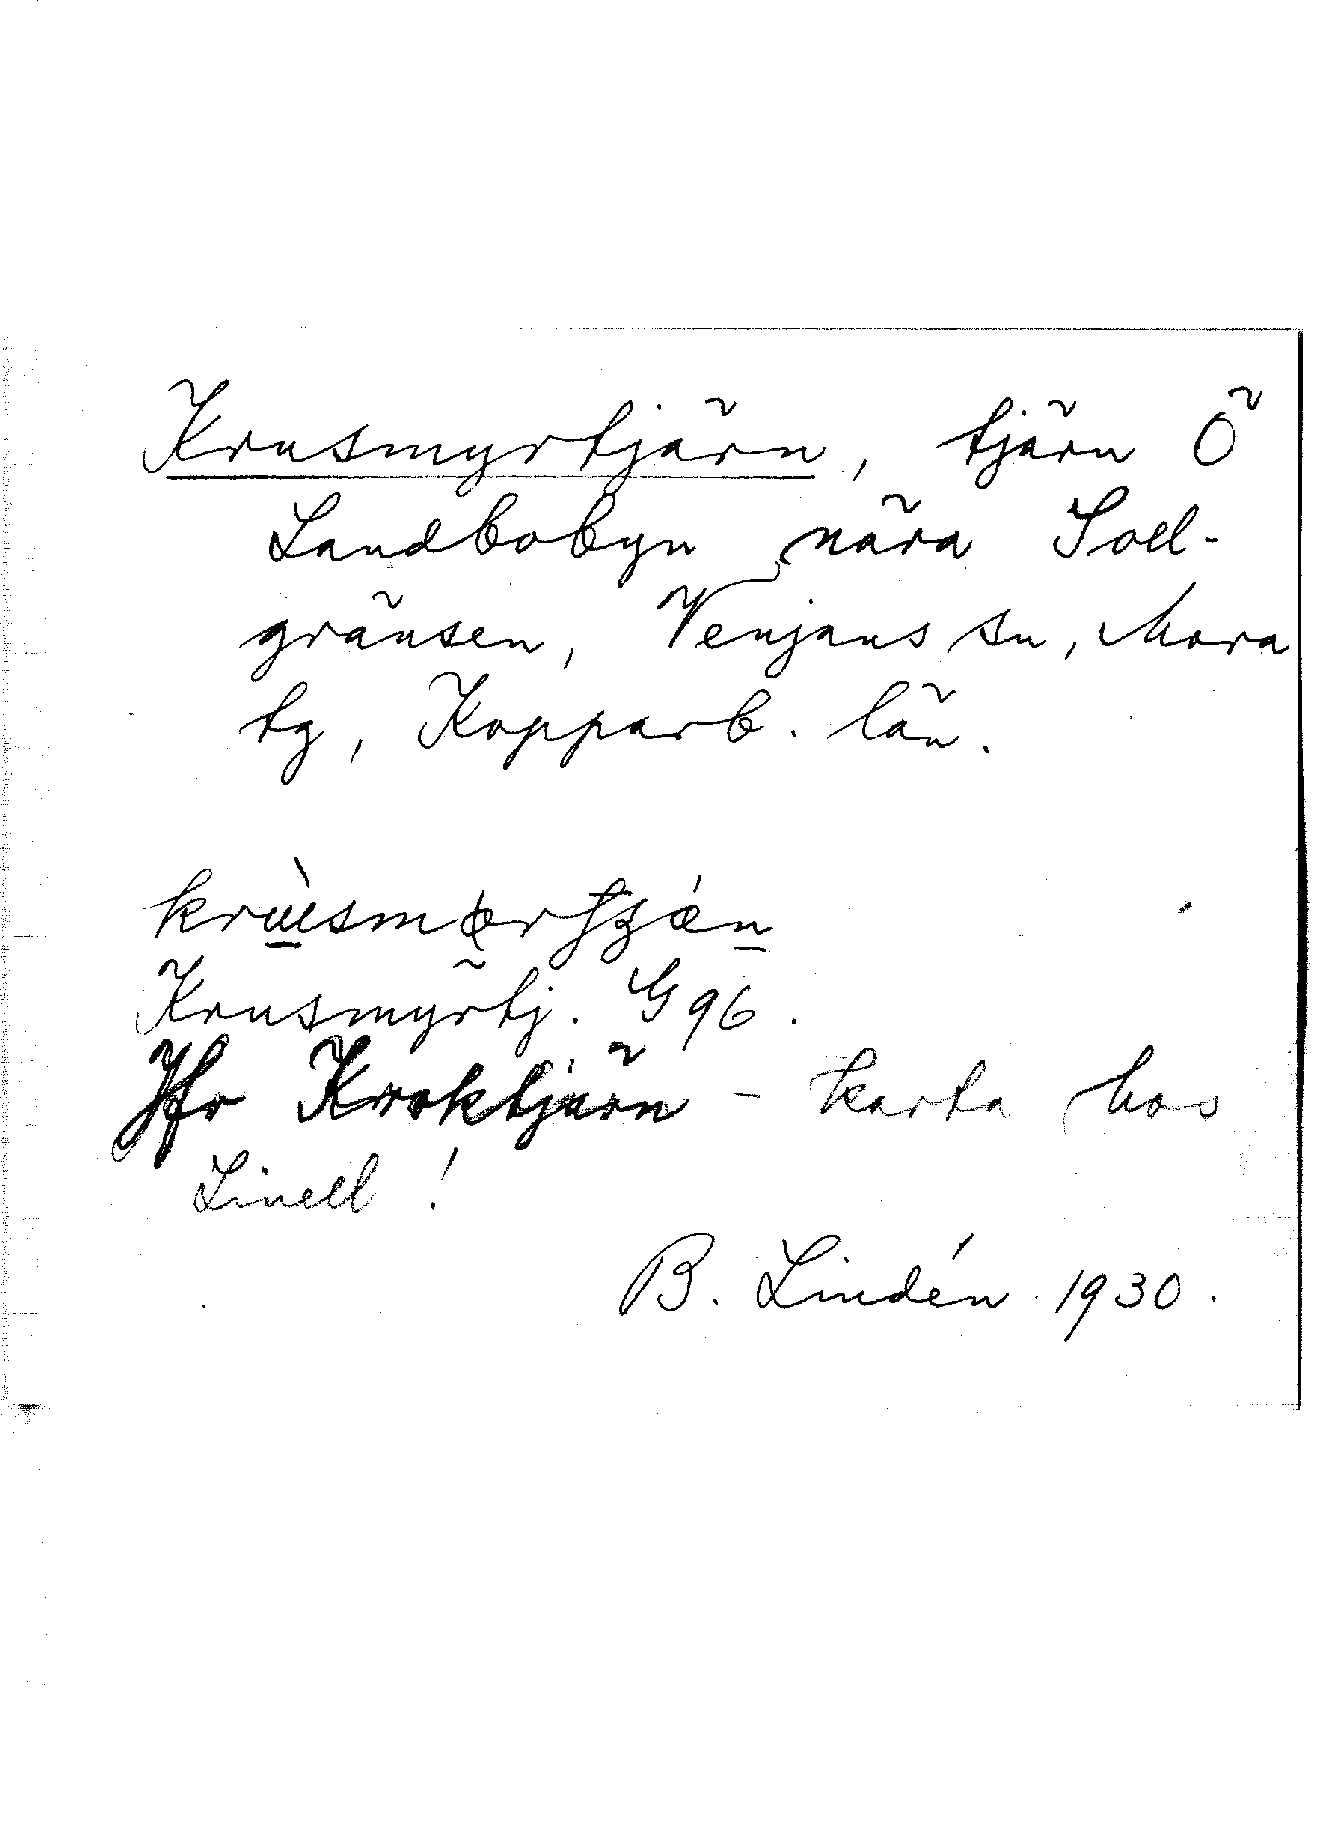 Krusmyrtjärn, tjärn Ö
Landbobyn nära Soll-
gränsen, Venjans sn, Mora
tg, Kopparb. län.
Krusmyrtj. G 96.
Jfr Kroktjärn - karta hos
Linell!
B. Lindén 1930.